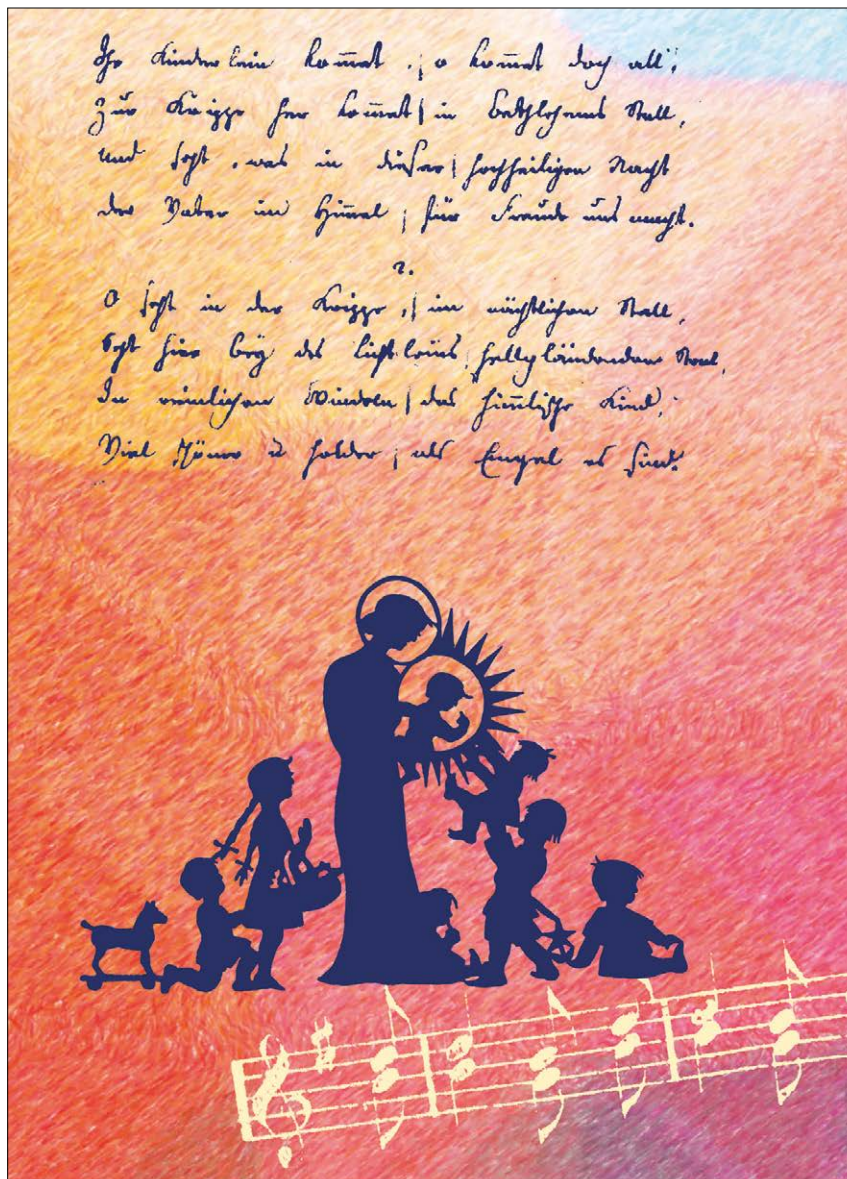 Ihr Kinderlein kom̄et , | o kom̄et doch all',
Zur Krippe her kom̄et | in Bethlehems Stall,
Und seht , was in dieser | hochheiligen Nacht
der Vater im Him̄el | für Freude uns macht.
2.
O seht in der Krippe, | im nächtlichen Stall,
Seht hier bey des Lichtleins hellglänzendem Stral,
In reinlichen Windeln | das him̄lische Kind,
Viel schöner u holder | als Engel es sind.